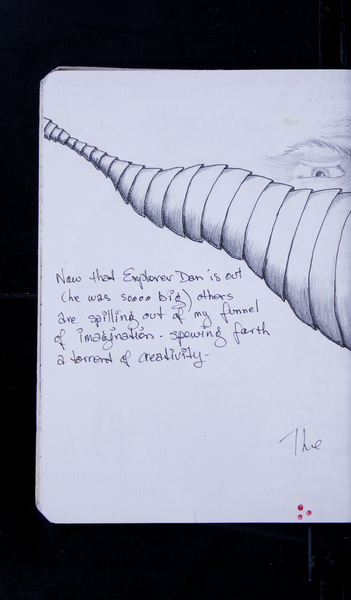 Now that Explorer Dan is out
(he was soooo big) others
are spilling out of my funnel
of imagination - spewing forth
a torrent of creativity-
The